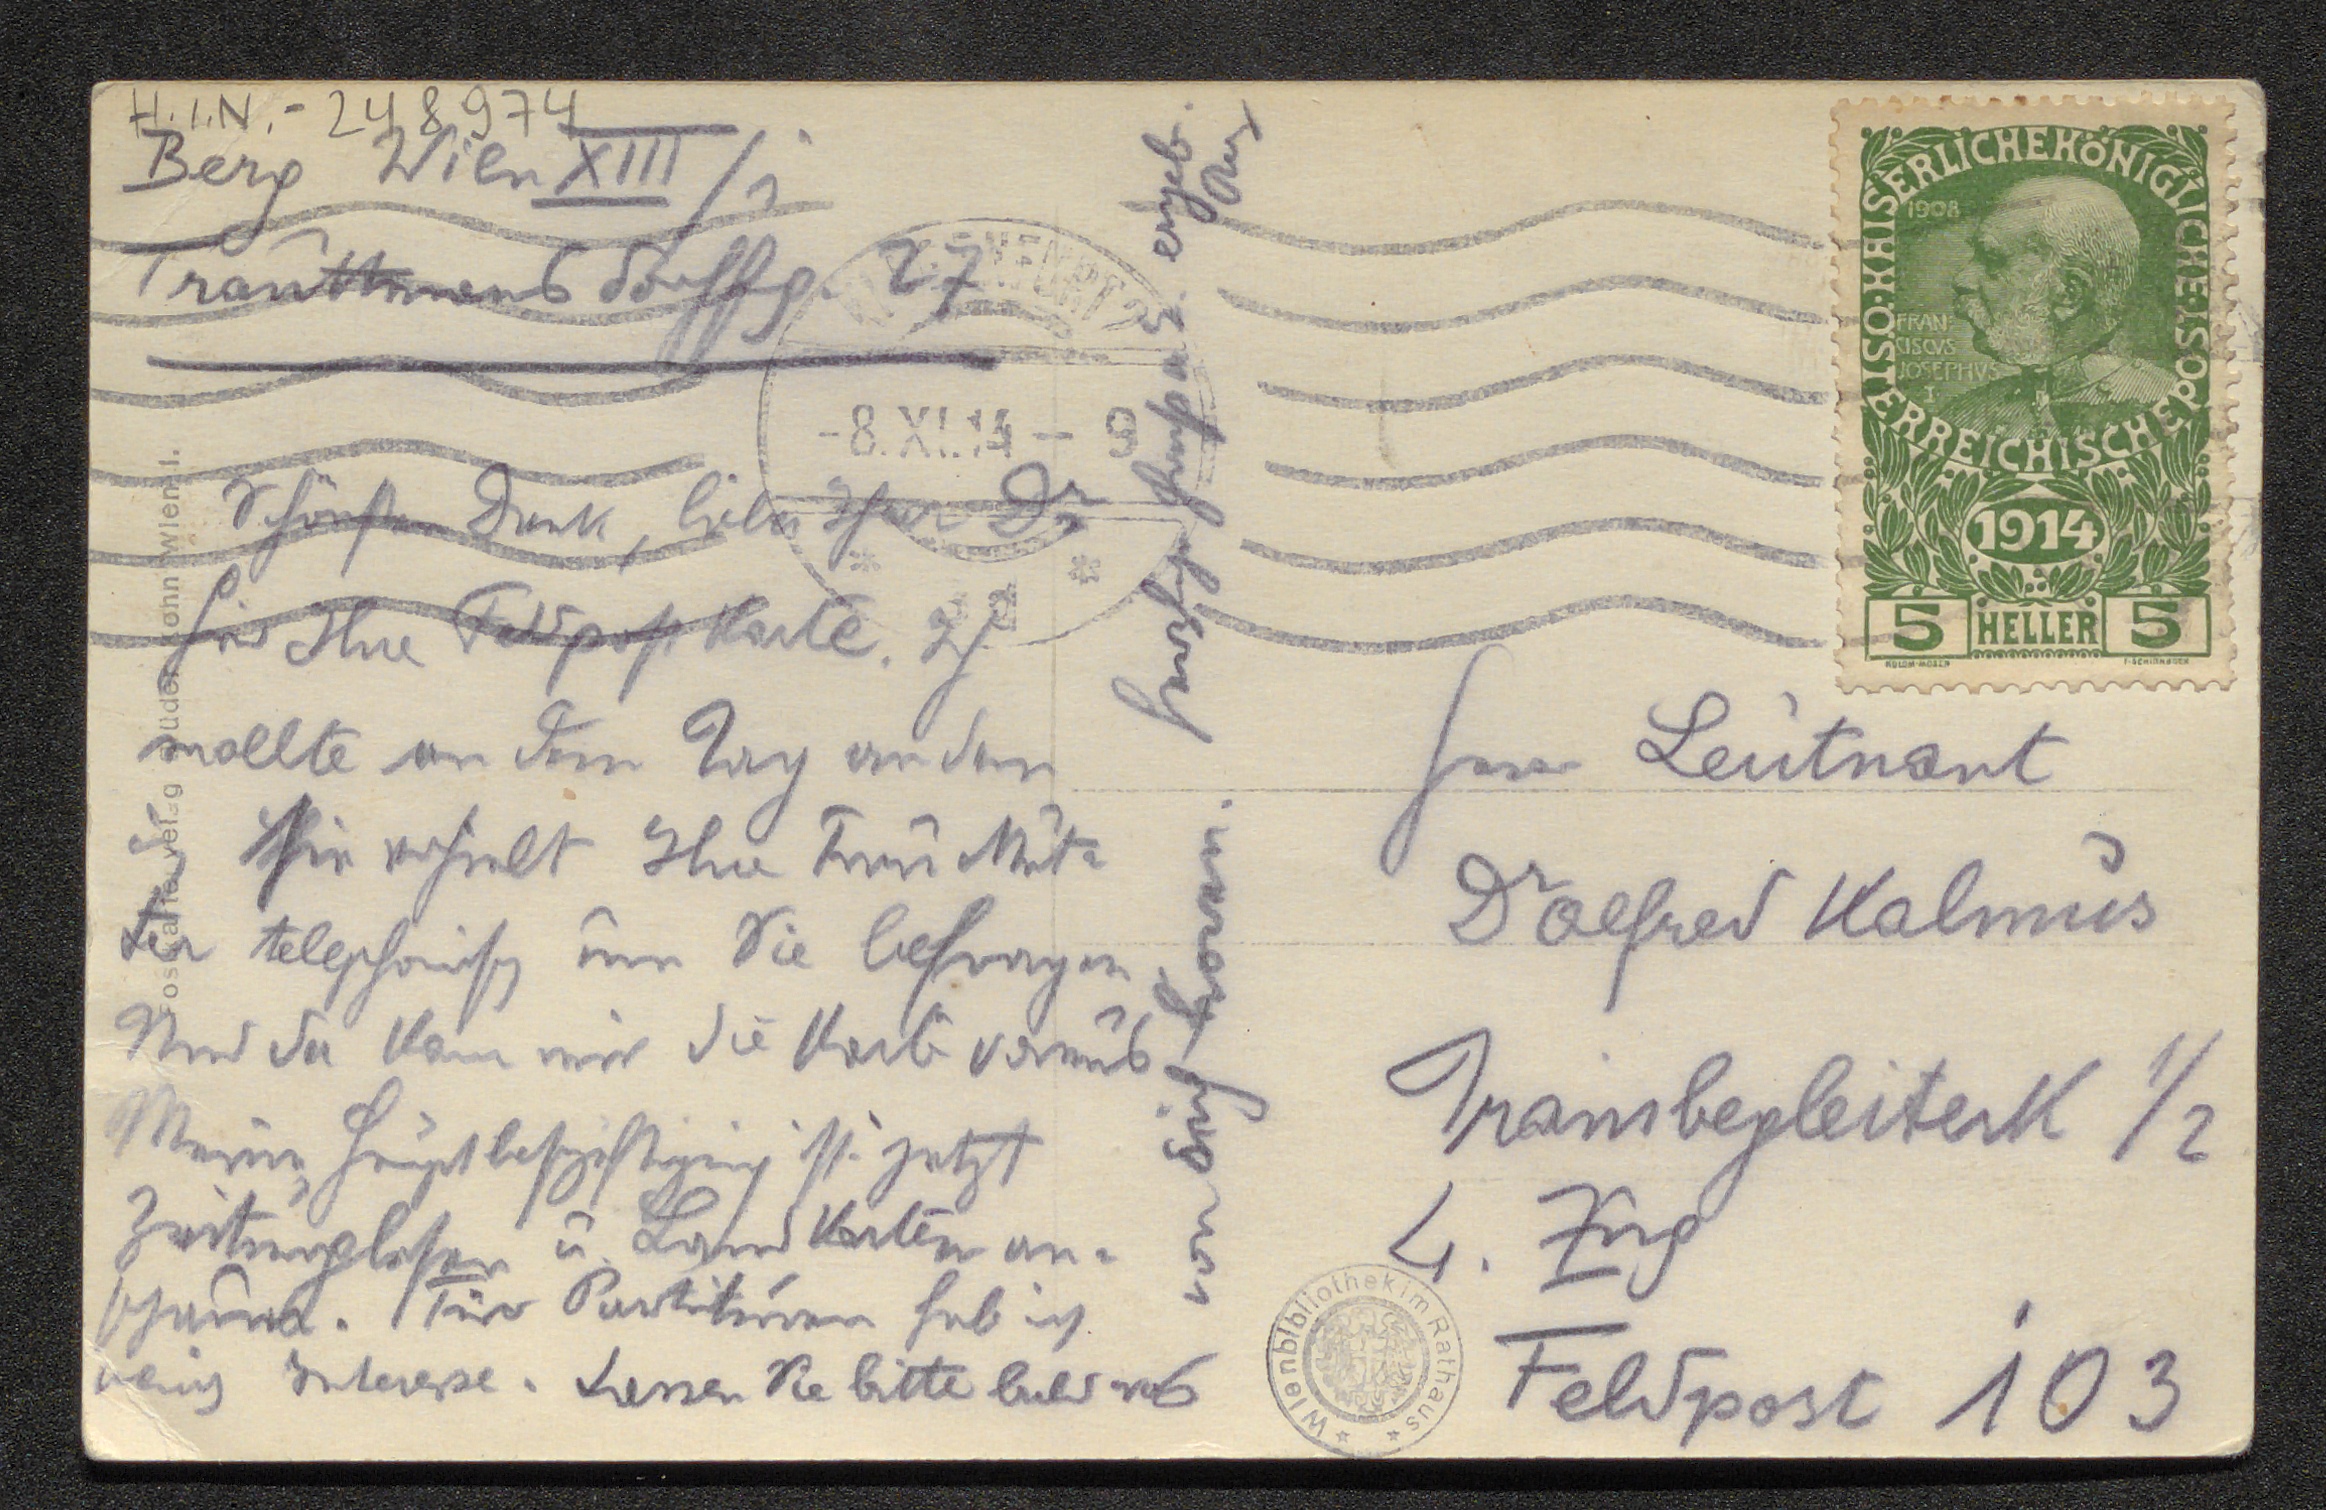 H.I.N.- 248974
Berg Wien XIII/1
Trauttmansdorffg. 27
Schönsten Dank, lieber Herr Dr
für Ihre Feldpostkarte. Ich
wollte an dem Tag an dem
ich sie erhielt Ihre Frau Mut-
ter telephonisch um Sie befragen
Und da kam mir die Karte voraus
Meine Hauptbeschäftigung ist jetzt
Zeitunglesen u. Landkarten an-
schauen. Für Partituren hab ich
wenig Interesse. Lassen Sie bitte bald was
von sich hören.
Herzlich grüßt Ihr ergeb.
Berg
8.XI.14 - 9
KAISERLICHE KÖNIGLICHE ÖSTERREICHISCHE POST
1908
FRAN-
CISCVS
JOSEPHVS
I
1914
5 HELLER 5
KOLOM·MOSER
F·SCHIRNBÖCK
Herrn Leutnant
Dr Alfred Kalmus
Trainsbegleiterk 1/2
4. Zug
Feldpost 103
Wienbibliothek im Rathaus
Postkartenverlag Brüder Kohn Wien I.